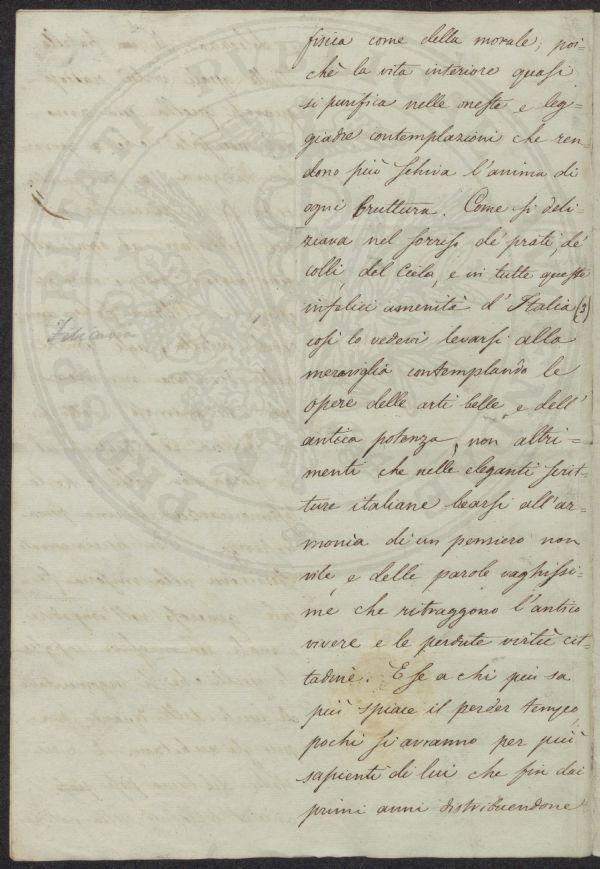 fisica come della morale; poi=
chè la vita interiore quasi
si purifica nelle oneste e leg=
giadre contemplazioni che ren=
dono più schiva l'anima di
ogni bruttura. Come si deli=
ziava nel sorriso de' prati, de'
colli, del Cielo, e in tutte queste
infelici amenità d'Italia (3)
così lo vedevi levarsi alla
meraviglia contemplando le
opere delle arti belle e dell'
antica potenza, non altri=
menti che nelle eleganti scrit=
ture italiane bearsi all'ar=
monia di un pensiero non
vile, e delle parole vaghissi=
me che ritraggono l'antico
vivere e le perdute virtù cit=
tadine. E se a chi più sa
più spiace il perder tempo,
pochi si avranno per più
sapienti di lui che fin dai
primi anni distribuendone
Filicaia